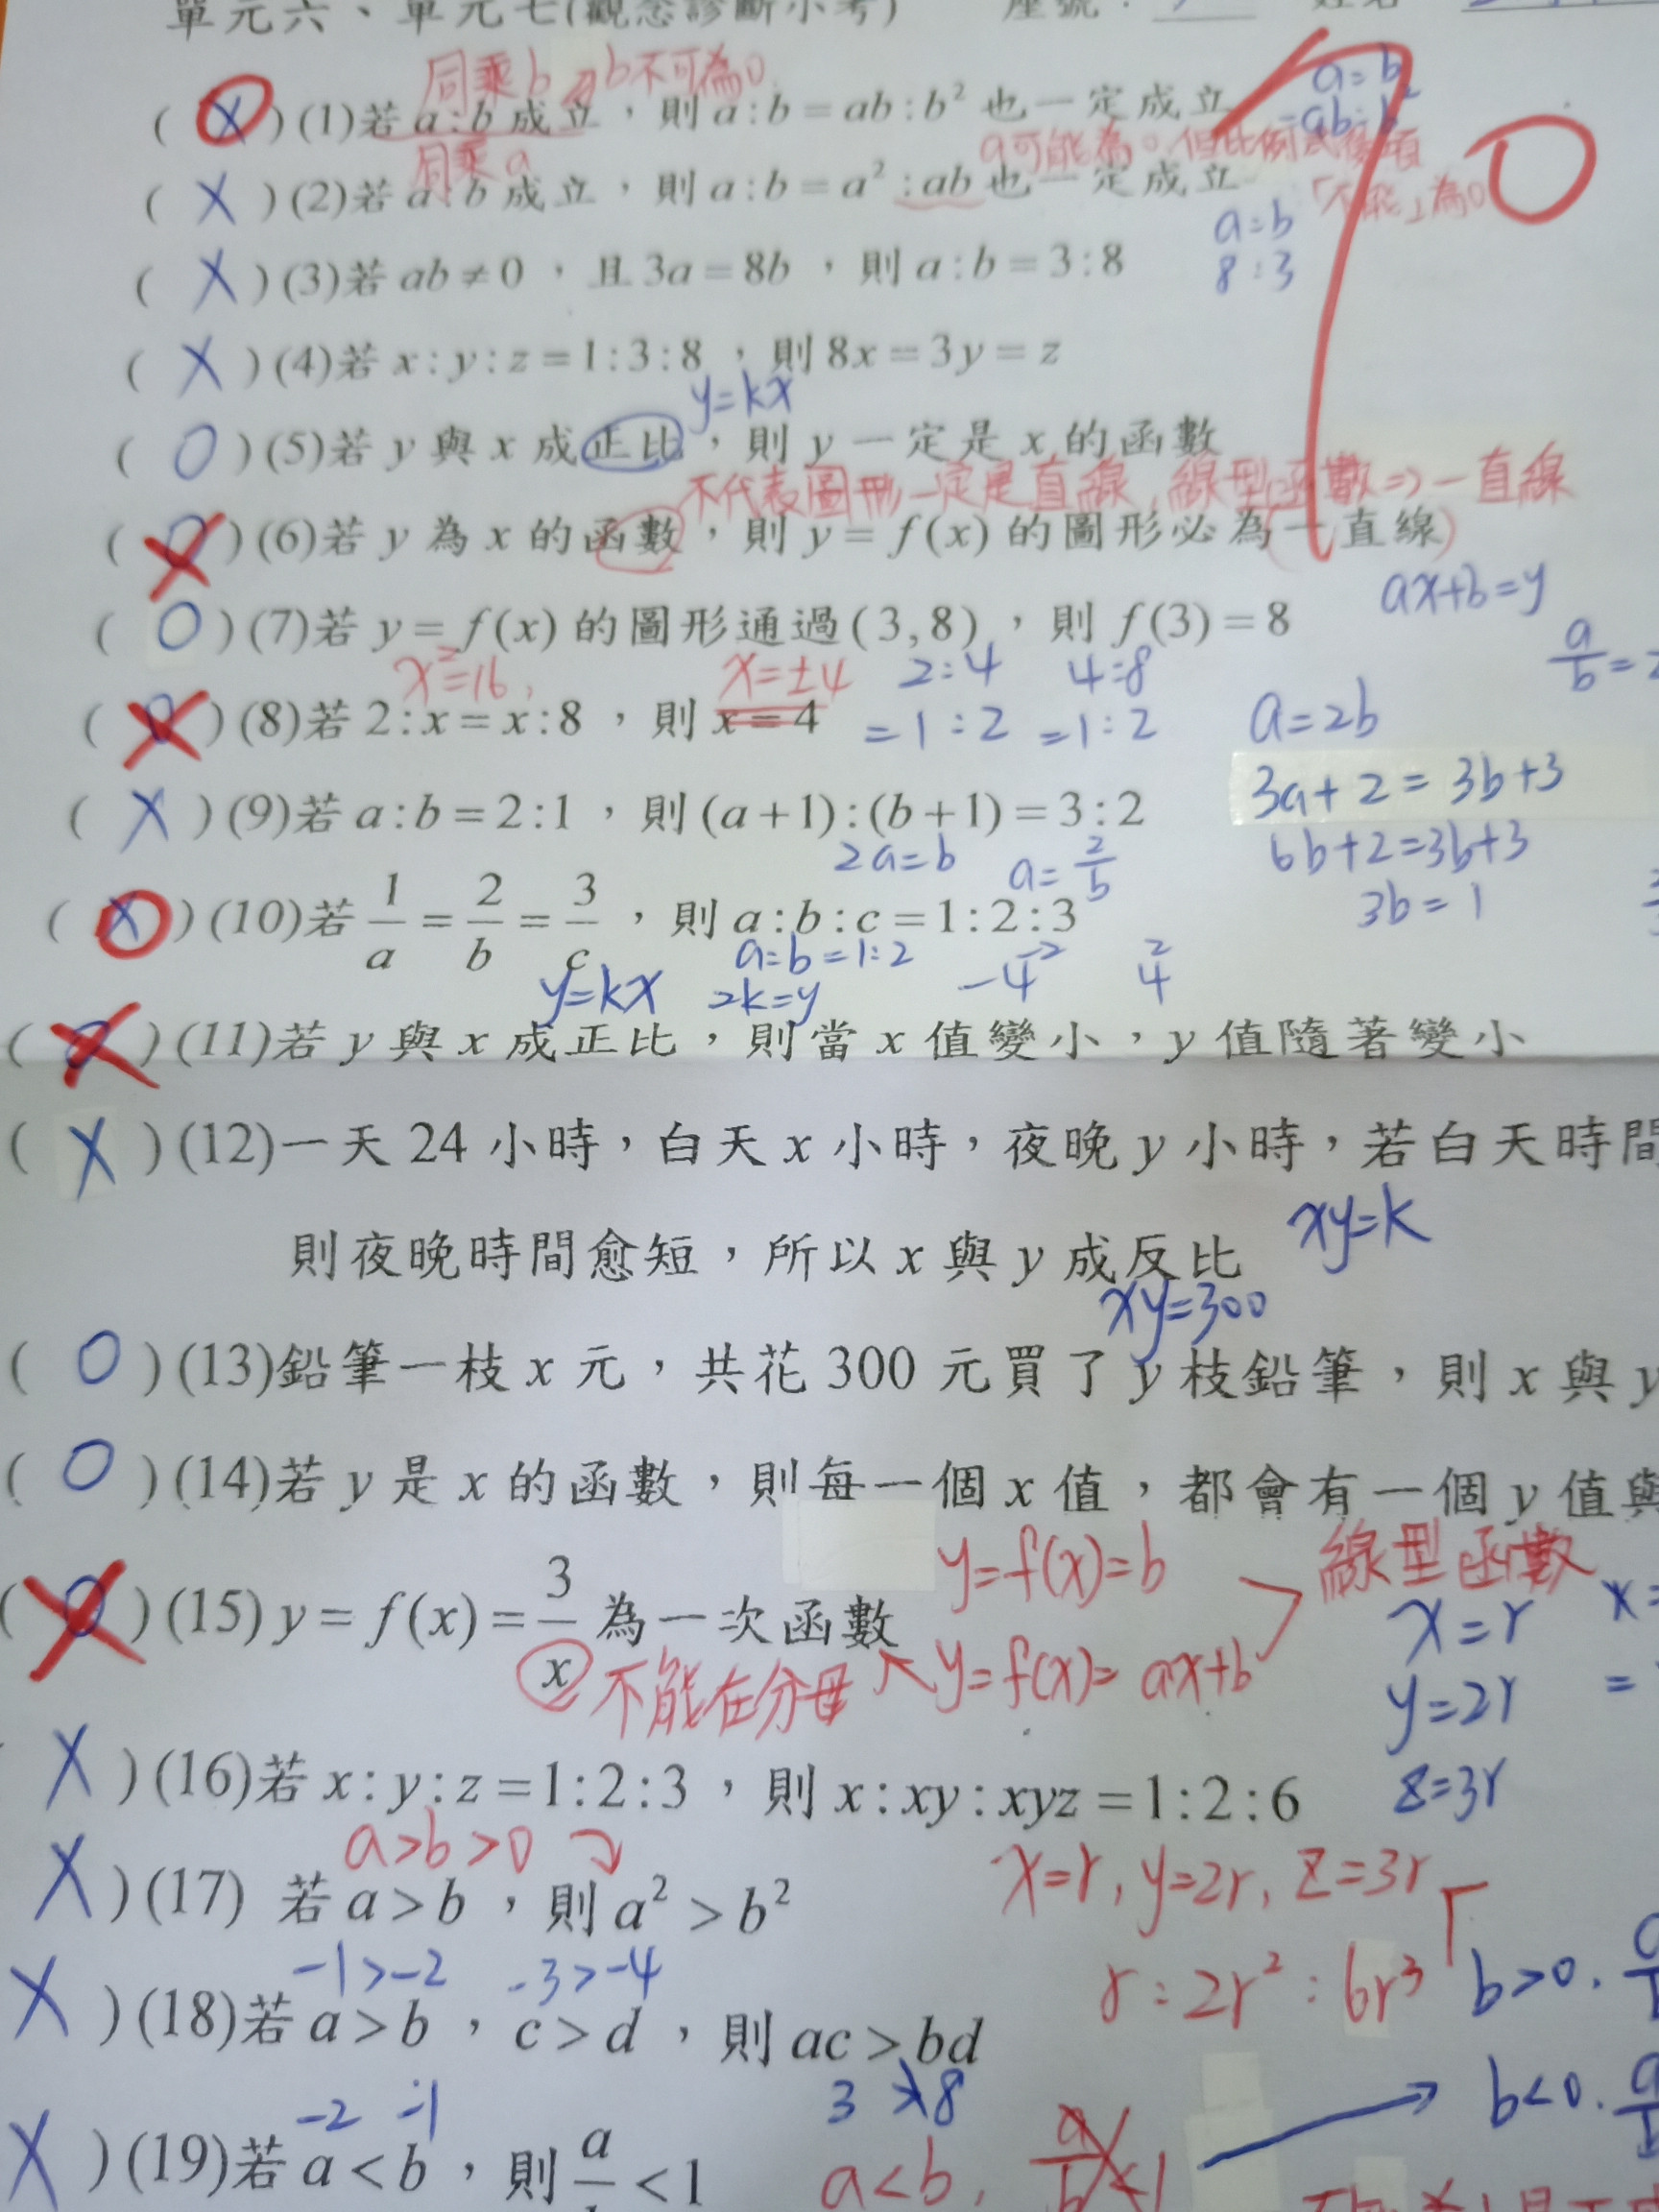 單元六、單元七(觀念診斷小考) 座號：
同乘b b不可為0
a=b
(X)(1)若 a:b 成立，則 a:b = ab:b² 也一定成立
=ab:b²
同乘a a可能為0，但比例式後項
(X)(2)若 a:b 成立，則 a:b = a²:ab 也一定成立
「不能」為0
70
a=b
(X)(3)若 ab≠0，且 3a=8b，則 a:b=3:8
8:3
(X)(4)若 x:y:z=1:3:8，則 8x=3y=z
y=kx
(O)(5)若 y 與 x 成正比，則 y 一定是 x 的函數
不代表圖形一定是直線，線型函數⇒一直線
(X)(6)若 y 為 x 的函數，則 y=f(x) 的圖形必為一直線
ax+b=y
(O)(7)若 y=f(x) 的圖形通過(3,8)，則 f(3)=8
x²=16, x=±4 2:4 4:8
(X)(8)若 2:x=x:8，則 x=4 =1:2 =1:2
a=2b
3a+2=3b+3
(X)(9)若 a:b=2:1，則 (a+1):(b+1)=3:2
6b+2=3b+3
3b=1
2a=b a=2/b
(X)(10)若 1/a = 2/b = 3/c，則 a:b:c=1:2:3
a:b=1:2
y=kx 2k=y
(X)(11)若 y 與 x 成正比，則當 x 值變小，y 值隨著變小
(X)(12)一天 24 小時，白天 x 小時，夜晚 y 小時，若白天時間
則夜晚時間愈短，所以 x 與 y 成反比
xy=k
xy=300
(O)(13)鉛筆一枝 x 元，共花 300 元買了 y 枝鉛筆，則 x 與 y
(O)(14)若 y 是 x 的函數，則每一個 x 值，都會有一個 y 值與
y=f(x)=b 線型函數
(X)(15) y=f(x)=3/x 為一次函數
不能在分母 y=f(x)=ax+b
x=r
y=2r
z=3r
X)(16)若 x:y:z=1:2:3，則 x:xy:xyz=1:2:6
a>b>0
X)(17) 若 a>b，則 a²>b²
x=r, y=2r, z=3r
r:2r²:6r³
-1>-2 -3>-4
b>0.
X)(18)若 a>b，c>d，則 ac>bd
3 8
b<0.
-2 -1
X)(19)若 a<b，則 a/b<1
a<b, a/b<1